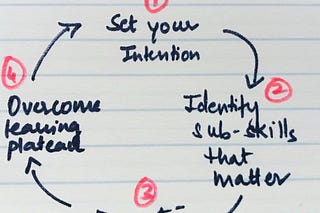 1
Set your
Intention
2
Identify
sub-skills
that
matter
3
4
Overcome
learning
plateau